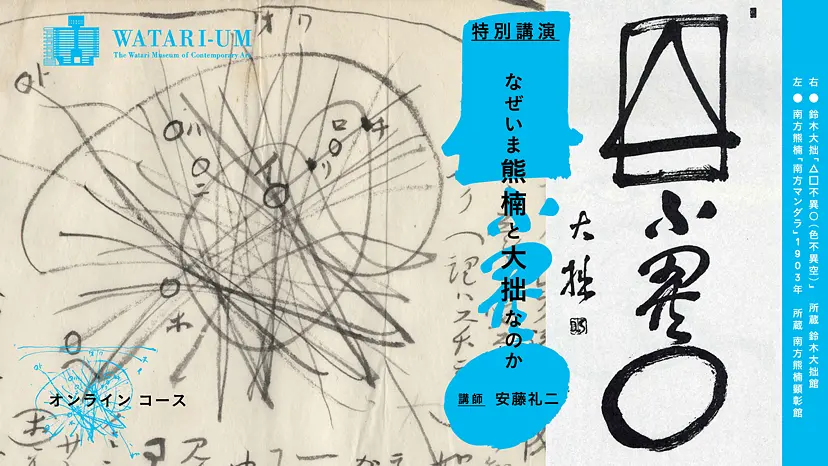 WATARI-UM
The Watari Museum of Contemporary Art
特別講演
なぜいま熊楠と大拙なのか
講師 安藤礼二
オンライン コース
オ
ワ
ハ
ロ
チ
ニ
リ
イ
ホ
不異
大拙
右 ● 鈴木大拙「△□不異○(色不異空)」 所蔵 鈴木大拙館
左 ● 南方熊楠「南方マンダラ」1903年 所蔵 南方熊楠顕彰館